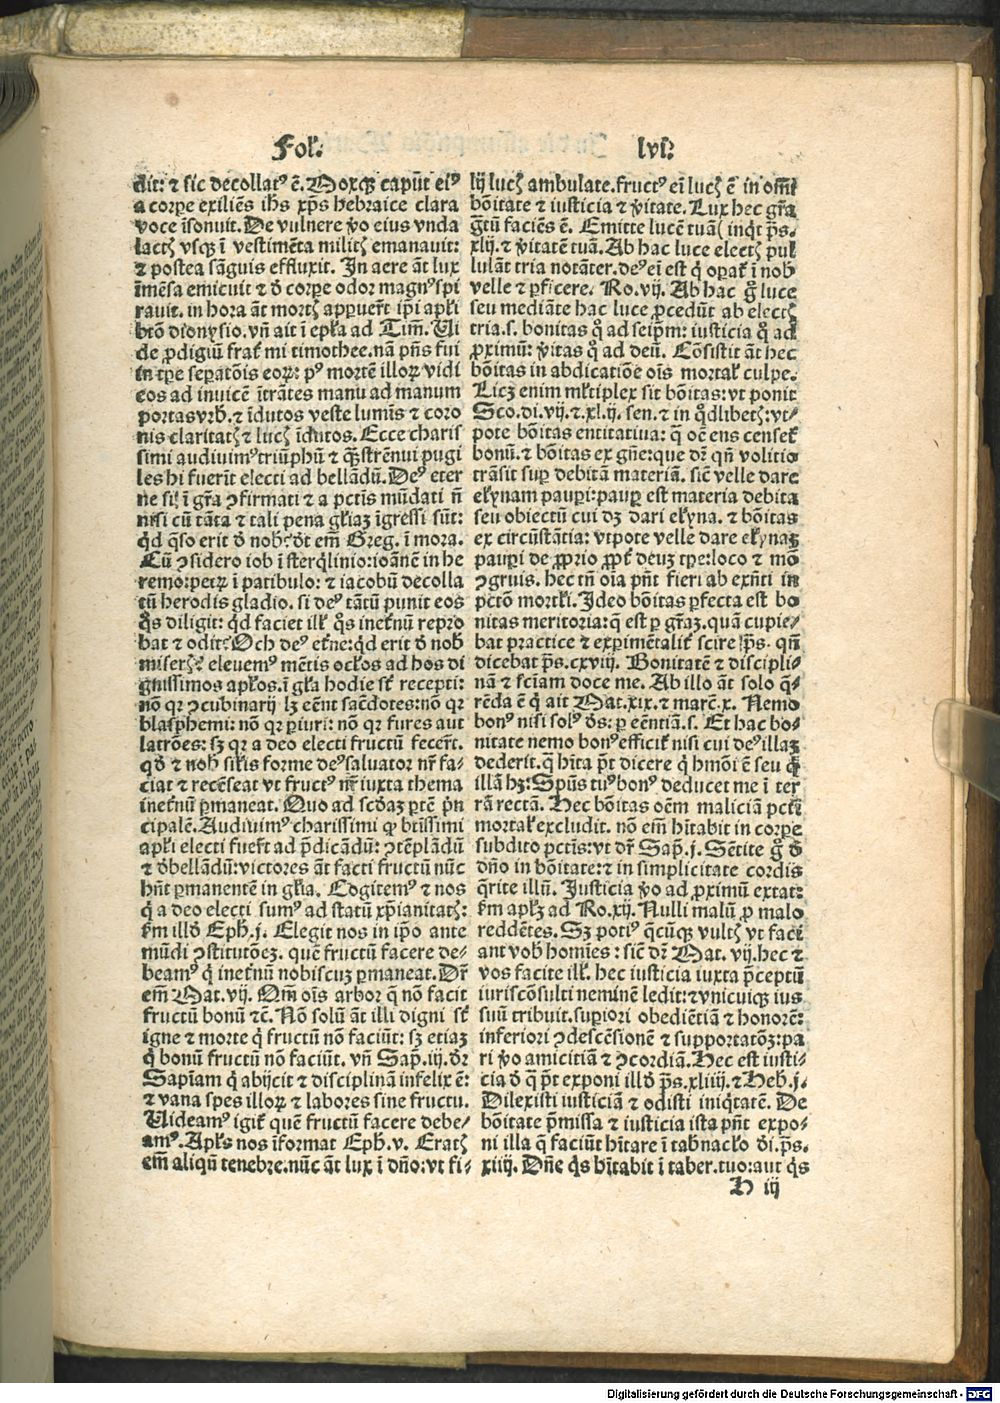 Fol. lvi.
dit: ⁊ sic decollatꝰ ē. Moxqꝫ caput eiꝰ
a corpe exiliēs ihs xp̄s hebraice clara
voce īsonuit. De vulnere v̓o eius vnda
lactꝭ vsqꝫ ī vestimēta militꝭ emanauit:
⁊ postea sāguis effluxit. In aere āt lux
īmēsa emicuit ⁊ d̓ corpe odor magnꝰ spi
rauit. in hora āt mortꝭ appuer̄t ip̄i apl̓i
btō dionysio. vn̄ ait ī epl̓a ad Tim̄. Ui
de ꝓdigiū frat̓ mi timothee. nā pn̄s fui
in tpe sepatōis eoꝝ: pꝰ mortē illoꝝ vidi
eos ad inuicē ītrātes manu ad manum
portas vrb̓. ⁊ īdutos veste lumīs ⁊ coro
nis claritatꝭ ⁊ lucꝭ īdutos. Ecce charis
simi audiuimꝰ triūphū ⁊ q̄ strēnui pugi
les hi fuerīt electi ad bellādū. Deꝰ eter
ne si hi ī gr̄a ꝯfirmati ⁊ a pctīs mūdati n̄
nisi cū tāta ⁊ tali pena gl̓iaꝫ īgressi sūt:
qd̓ q̄so erit d̓ nob̓: dt̓ em̄ Greg. ī mora.
Cū ꝯsidero iob ī sterq̓linio: ioānē in he
remo: petꝝ ī patibulo: ⁊ iacobū decolla
tū herodis gladio. si deꝰ tātū punit eos
q̓s diligit: qd̓ faciet ill̓ q̓s inet̓nū repro
bat ⁊ odit? Och deꝰ et̓ne: qd̓ erit d̓ nob̓
miserꝭ? eleuemꝰ mētis ocl̓os ad hos di
gnissimos apl̓os. ī gl̓a hodie st̓ recepti:
nō qꝛ ꝯcubinarij lꝫ eēnt sac̓dotes: nō qꝛ
blasphemi: nō qꝛ piuri: nō qꝛ fures aut
latrōes: sꝫ qꝛ a deo electi fructū fecer̄t.
qd̓ ⁊ nob̓ sil̓is forme deꝰ saluator nr̄ fa-
ciat ⁊ recēseat vt fructꝰ nr̄ iuxta thema
inet̓nū pmaneat. Quo ad scd̓aꝫ ptē p̄n
cipalē. Audiuimꝰ charissimi qꝫ btīssimi
apl̓i electi fuer̄t ad p̄dicādū: ꝯtēplādū
⁊ d̓bellādū: victores āt facti fructū nūc
hn̄t pmanentē in gl̓ia. Cogitemꝰ ⁊ nos
q̓ a deo electi sumꝰ ad statū xp̄ianitatꝭ:
s̓m illd̓ Eph. j. Elegit nos in ip̄o ante
mūdi ꝯstitutōeꝫ. quē fructū facere de-
beamꝰ q̓ inet̓nū nobiscuꝫ pmaneat. Dr̄
em̄ Mat. vij. Om̄ oīs arbor q̄ nō facit
fructū bonū ⁊c̄. Nō solū āt illi digni st̓
igne ⁊ morte q̓ fructū nō faciūt: sꝫ etiaꝫ
q̓ bonū fructū nō faciūt. vn̄ Sap̄. iij. dr̄
Sapīam q̓ abijcit ⁊ disciplinā infelix ē:
⁊ vana spes illoꝝ ⁊ labores sine fructu.
Uideamꝰ igit̓ quē fructū facere debe-
amꝰ. Apl̓s nos īformat Eph. v. Eratꝭ
em̄ aliqn̄ tenebre. nūc āt lux ī dn̄o: vt fi-
lij lucꝭ ambulate. fructꝰ ei̓ lucꝭ ē in om̄i
bōitate ⁊ iusticia ⁊ v̓itate. Lux hec gr̄a
g̓tū faciēs ē. Emitte lucē tuā( inq̓t ps.
xlij. ⁊ v̓itatē tuā. Ab hac luce electꝭ pul
lulāt tria notāter. deꝰ ei̓ est q̓ opat̓ ī nob̓
velle ⁊ pficere. Ro. vij. Ab hac g̓ luce
seu mediāte hac luce ꝓcedūt ab electꝭ
tria. s. bonitas q̓ ad seip̄m: iusticia q̓ ad
ꝓximū: v̓itas q̓ ad deū. Cōsistit āt hec
bōitas in abdicatiōe oīs mortal̓ culpe.
Licꝫ enim ml̓tiplex sit bōitas: vt ponit
Sco. di. vij. ⁊. xl. ij. sen. ⁊ in q̓dlibetꝭ: vt-
pote bōitas entitatiua: q̄ oē ens censet̓
bonū. ⁊ bōitas ex gn̄e: que dr̄ qn̄ volitio
trāsit sup debitā materiā. sic̄ velle dare
el̓ynam paupi: paup est materia debita
seu obiectū cui dꝫ dari el̓yna. ⁊ bōitas
ex circūstātia: vtpote velle dare el̓ynaꝫ
paupi de ꝓprio ꝓpt̓ deuꝫ tpe: loco ⁊ mō
ꝯgruis. hec tn̄ oīa pn̄t fieri ab exn̄ti in
pctō mortl̓i. Ideo bōitas pfecta est bo
nitas meritoria: q̄ est p gr̄aꝫ. quā cupie-
bat practice ⁊ expimētalit̓ scire ps. qn̄
dicebat ps. cxviij. Bonitatē ⁊ discipli-
nā ⁊ sc̄iam doce me. Ab illo āt solo q̄-
rēda ē q̓ ait Mat. xix. ⁊ marc̄. x. Nemo
bonꝰ nisi solꝰ ds: p eēntiā. s. Et hac bo-
nitate nemo bonꝰ efficit̓ nisi cui deꝰ illaꝫ
dederit. q̄ hīta p̄t dicere q̓ hmōi ē seu q̓
illā hꝫ: Spūs tuꝰ bonꝰ deducet me ī ter
rā rectā. Hec bōitas oēm maliciā pcti̓
mortal̓ excludit. nō em̄ hītabit in corpe
subdito pctīs: vt dr̄ Sap̄. j. Sētite g̓ d̓
dn̄o in bōitate: ⁊ in simplicitate cordis
q̄rite illū. Justicia v̓o ad ꝓximū extat:
s̓m apl̓ꝫ ad Ro. xij. Nulli malū ꝓ malo
reddētes. Sꝫ potiꝰ q̄cūqꝫ vultꝭ vt faci
ant vob̓ homīes: sic̄ dr̄ Mat. vij. hec ⁊
vos facite ill̓. hec iusticia iuxta p̄ceptū
iuriscōsulti neminē ledit: ⁊ vnicuiqꝫ ius
suū tribuit. supiori obediētiā ⁊ honorē:
inferiori ꝯdescēsionē ⁊ supportatōꝫ: pa
ri v̓o amicitiā ⁊ ꝯcordiā. Hec est iusti-
cia d̓ q̄ p̄t exponi illd̓ ps. xliiij. ⁊ Heb. j.
Dilexisti iusticiā ⁊ odisti iniq̓tatē. De
bōitate p̄missa ⁊ iusticia ista pn̄t expo-
ni illa q̄ faciūt hītare ī tabnacl̓o dī. ps.
xiiij. Dn̄e q̓s hītabit ī taber. tuo: aut q̓s
H iij
Digitalisierung gefördert durch die Deutsche Forschungsgemeinschaft - DFG